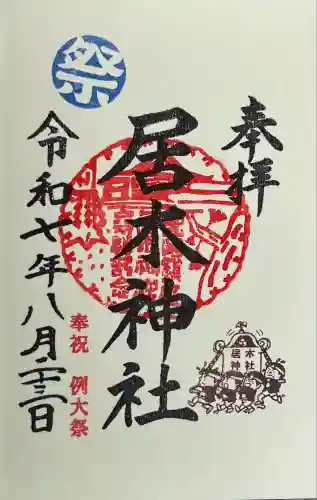 奉拝
居木神社
令和七年八月二十三日
祭
奉祝 例大祭
居木
神社